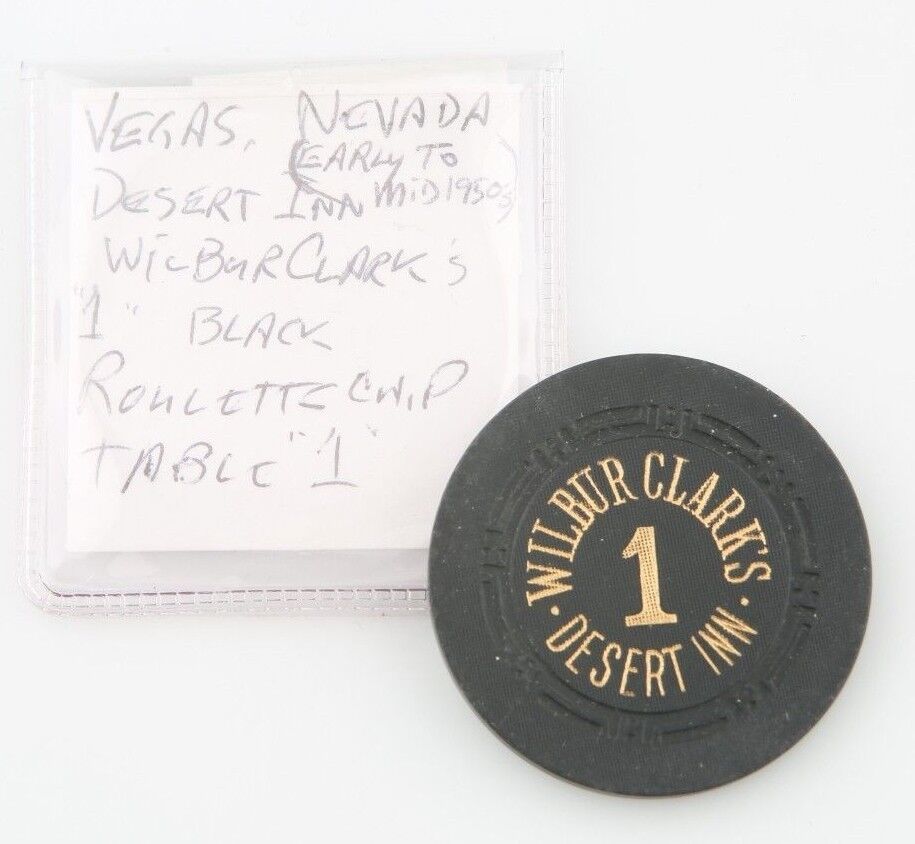 VEGAS, NEVADA
(EARLY TO
DESERT INN MID 1950s)
WILBUR CLARK's
"1" BLACK
ROULETTE CHIP
TABLE "1"
WILBUR CLARK'S
1
· DESERT INN ·